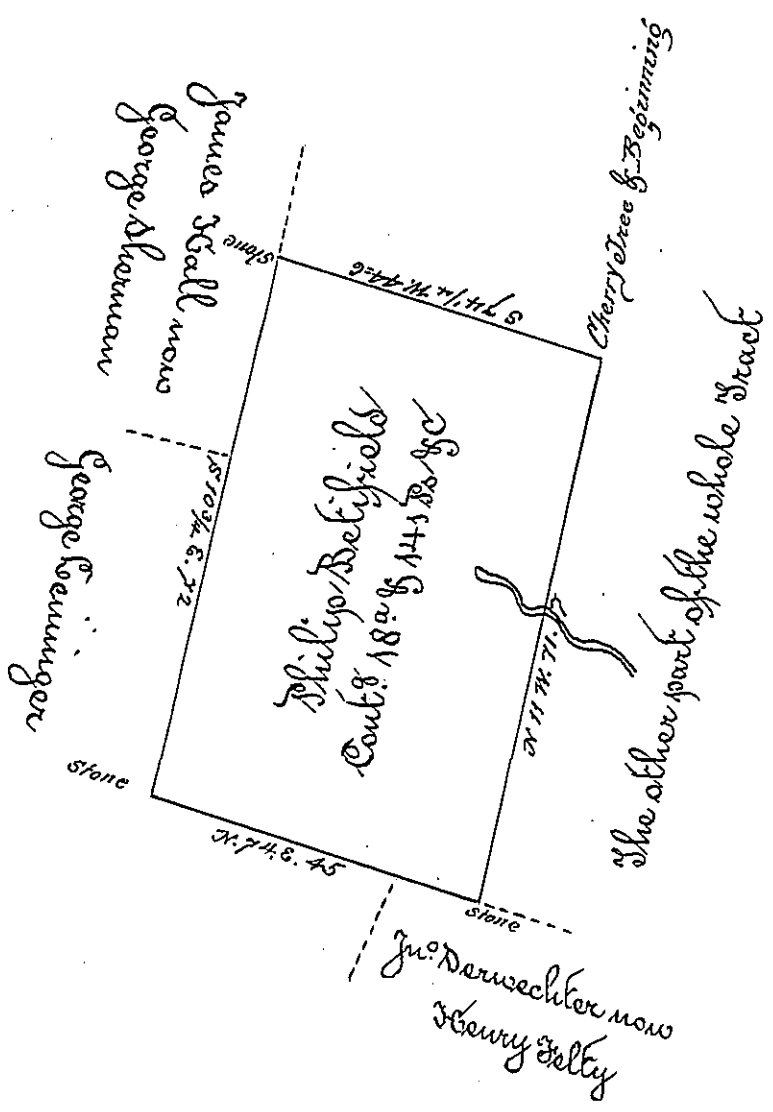 James Hall now
George Sherman
Stone
S 74 1/4 W. 44=6
Cherry Tree & Beginning
George Eeninger
S 10 3/4 E. 72
Philip Betifield
Cont.g 18.a & 141 Ps. &c
N 11 W. 71.
The other part of the whole Tract
Stone
N. 74. E. 45
Stone
Jno. Derwechter now
Henry Felty